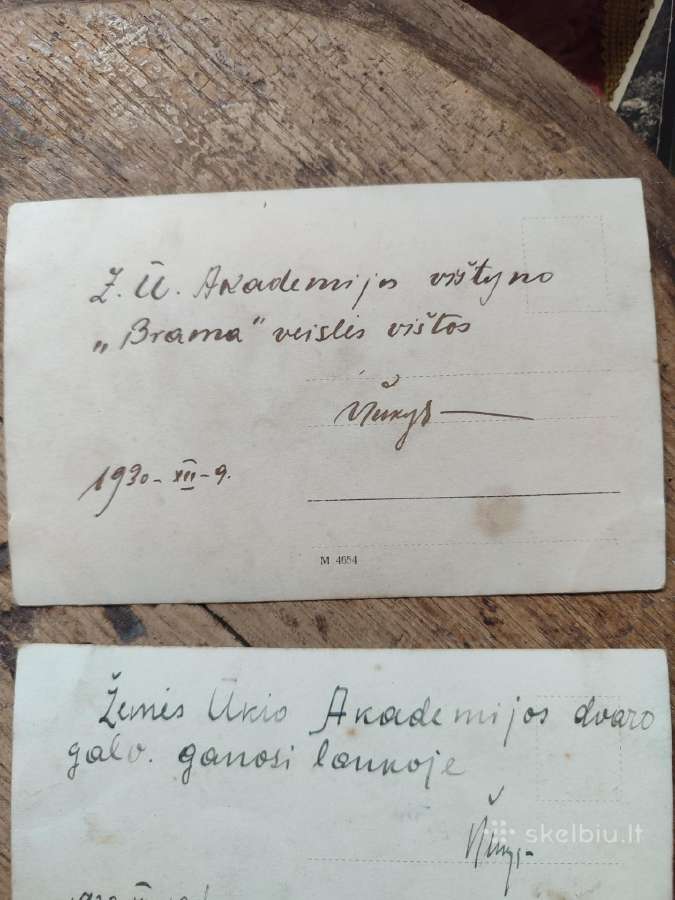 Ž. Ū. Akademijos vištyno
„Brama" veislės vištos
1930-XII-9.
M 4654
Žemės Ūkio Akademijos dvaro
galv. ganosi laukoje
skelbiu.lt